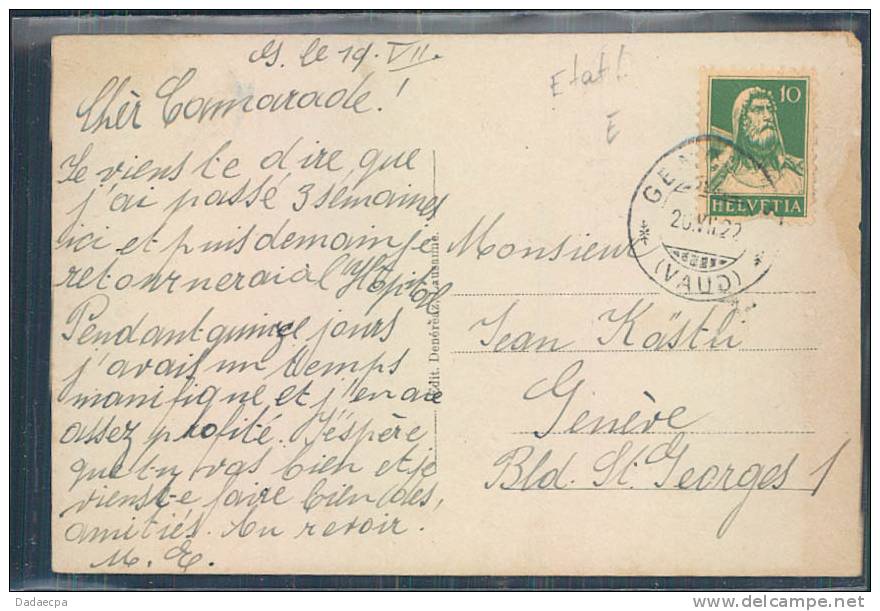 le 19. VII.
Chèr Camarade!
Je viens te dire que
j'ai passé 3 semaines
ici et puis demain je
retournerai al Hôpital
Pendant quinze jours
j'avais un temps
manifique et j'en ai
assez profité. J'éspère
que tu vas bien et je
viens te faire bien des
amitiés. Au revoir.
M. E.
Édit. Denéréaz, Lausanne.
Etat I.
E
10
HELVETIA
20.VII.22
(VAUD)
Monsieur
Jean Kästli
Genève
Bld. St. Georges 1
Dadaecpa
www.delcampe.net